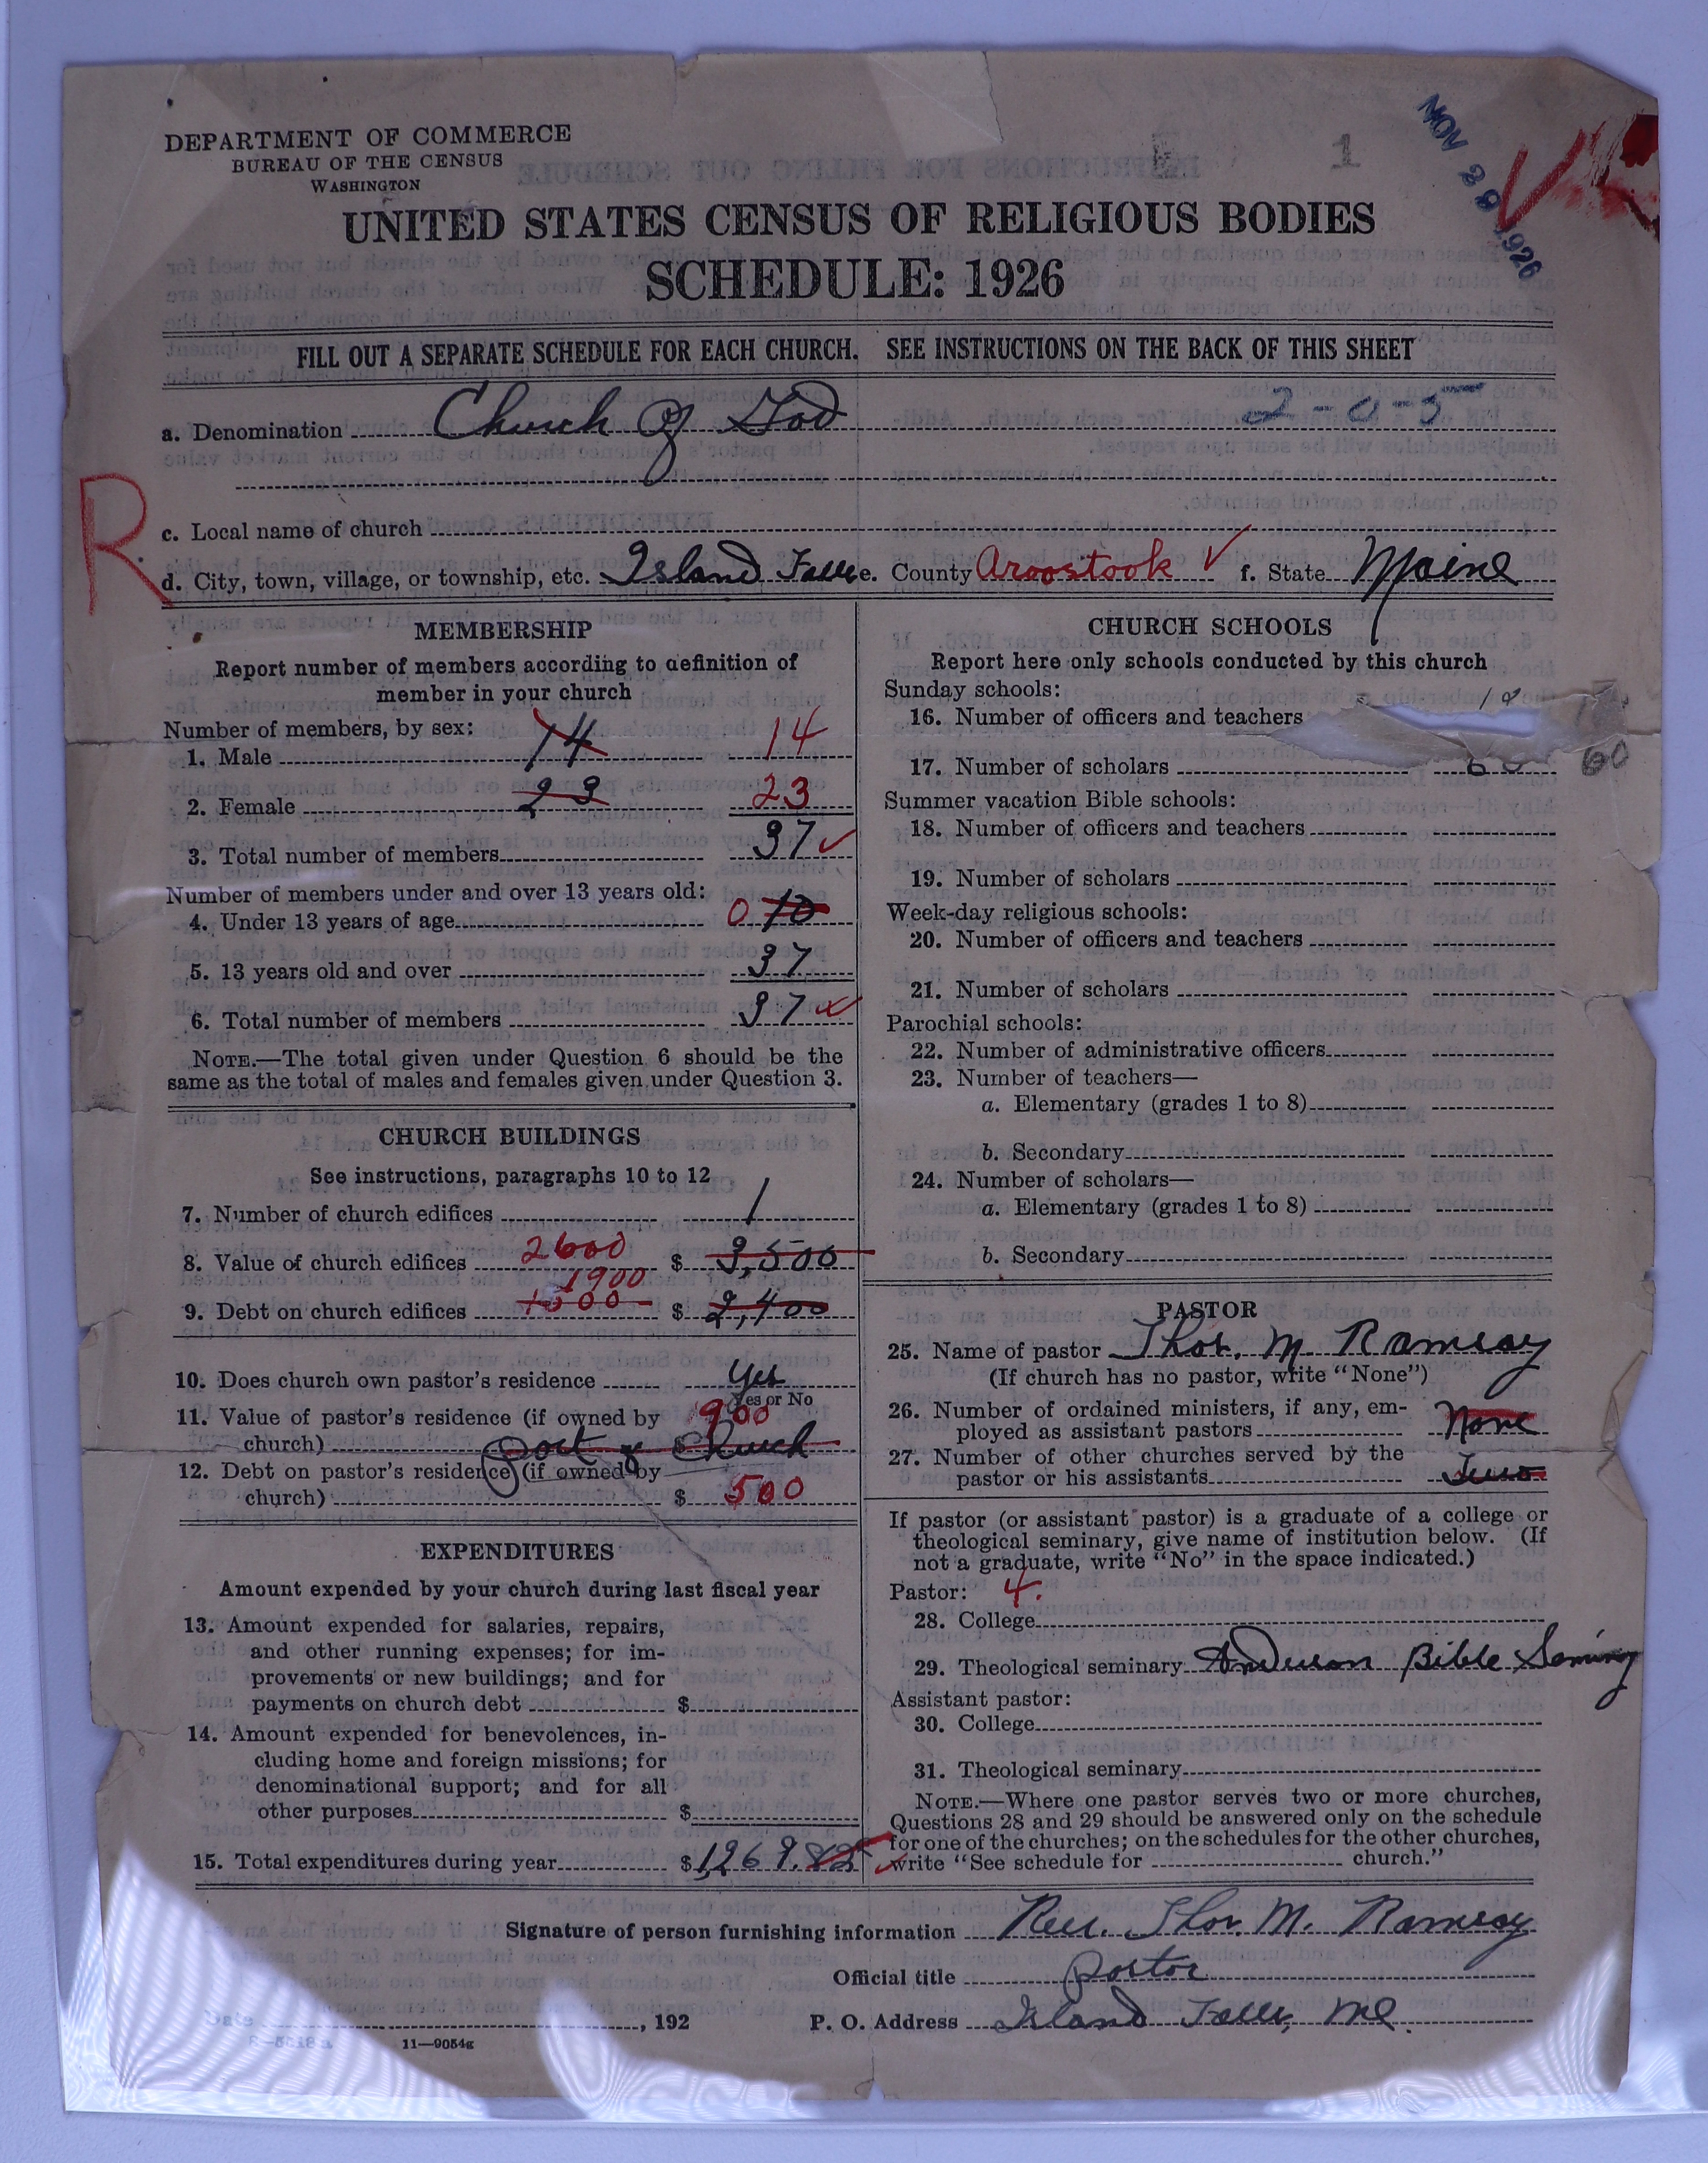 DEPARTMENT OF COMMERCE
BUREAU OF THE CENSUS
WASHINGTON
1
NOV 29 1926
UNITED STATES CENSUS OF RELIGIOUS BODIES
SCHEDULE: 1926
FILL OUT A SEPARATE SCHEDULE FOR EACH CHURCH. SEE INSTRUCTIONS ON THE BACK OF THIS SHEET
a. Denomination Church of God 2-0-5
R
c. Local name of church
d. City, town, village, or township, etc. Island Falls e. County Aroostook f. State Maine
MEMBERSHIP
Report number of members according to definition of
member in your church
Number of members, by sex:
1. Male 14 14
2. Female 23 23
3. Total number of members 37
Number of members under and over 13 years old:
4. Under 13 years of age 0 10
5. 13 years old and over 37
6. Total number of members 37
NOTE.—The total given under Question 6 should be the
same as the total of males and females given under Question 3.
CHURCH BUILDINGS
See instructions, paragraphs 10 to 12
7. Number of church edifices 1
8. Value of church edifices 2600 $ 3,500
1900
9. Debt on church edifices $ 2,400
10. Does church own pastor's residence Yes
Yes or No
11. Value of pastor's residence (if owned by 900
church) Part of Church
12. Debt on pastor's residence (if owned by
church) $ 500
EXPENDITURES
Amount expended by your church during last fiscal year
13. Amount expended for salaries, repairs,
and other running expenses; for im-
provements or new buildings; and for
payments on church debt $
14. Amount expended for benevolences, in-
cluding home and foreign missions; for
denominational support; and for all
other purposes $
15. Total expenditures during year $ 1,269.82
CHURCH SCHOOLS
Report here only schools conducted by this church
Sunday schools:
16. Number of officers and teachers
17. Number of scholars 60 60
Summer vacation Bible schools:
18. Number of officers and teachers
19. Number of scholars
Week-day religious schools:
20. Number of officers and teachers
21. Number of scholars
Parochial schools:
22. Number of administrative officers
23. Number of teachers—
a. Elementary (grades 1 to 8)
b. Secondary
24. Number of scholars—
a. Elementary (grades 1 to 8)
b. Secondary
PASTOR
25. Name of pastor Thos. M. Ramsay
(If church has no pastor, write "None")
26. Number of ordained ministers, if any, em-
ployed as assistant pastors None
27. Number of other churches served by the
pastor or his assistants Two
If pastor (or assistant pastor) is a graduate of a college or
theological seminary, give name of institution below. (If
not a graduate, write "No" in the space indicated.)
Pastor: 4.
28. College
29. Theological seminary Anderson Bible Seminry
Assistant pastor:
30. College
31. Theological seminary
NOTE.—Where one pastor serves two or more churches,
Questions 28 and 29 should be answered only on the schedule
for one of the churches; on the schedules for the other churches,
write "See schedule for church."
Signature of person furnishing information Rev. Thos. M. Ramsay
Official title Pastor
Date , 192
P. O. Address Island Falls, Me.
11—9054g